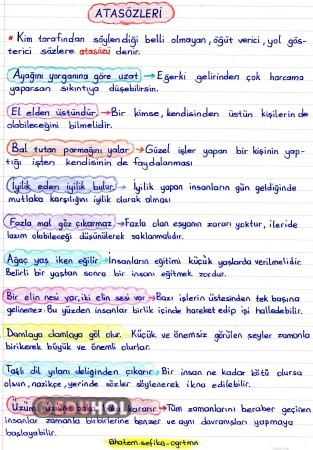 ATASÖZLERİ
* Kim tarafından söylendiği belli olmayan, öğüt verici, yol gös-
terici sözlere atasözü denir.
Ayağını yorganına göre uzat → Eğerki gelirinden çok harcama
yaparsan sıkıntıya düşebilirsin.
El elden üstündür. → Bir kimse, kendisinden üstün kişilerin de
olabileceğini bilmelidir.
Bal tutan parmağını yalar → Güzel işler yapan bir kişinin yap-
tığı işten kendisinin de faydalanması
İyilik eden iyilik bulur → İyilik yapan insanların gün geldiğinde
mutlaka karşılığını iyilik olarak alması
Fazla mal göz çıkarmaz → Fazla olan eşyanın zararı yoktur, ileride
lazım olabileceği düşünülerek saklanmalıdır.
Ağaç yaş iken eğilir → İnsanların eğitimi küçük yaşlarda verilmelidir.
Belirli bir yaştan sonra bir insanı eğitmek zordur.
Bir elin nesi var, iki elin sesi var → Bazı işlerin üstesinden tek başına
gelinemez. Bu yüzden insanlar birlik içinde hareket edip işi halledebilir.
Damlaya damlaya göl olur. Küçük ve önemsiz görülen şeyler zamanla
birikerek büyük ve önemli olurlar.
Tatlı dil yılanı deliğinden çıkarır → Bir insan ne kadar kötü olursa
olsun, nazikçe, yerinde sözler söylenerek ikna edilebilir.
Üzüm üzüme baka baka kararır → Tüm zamanlarını beraber geçiren
insanlar zamanla birbirlerine benzer ve aynı davranışları yapmaya
başlayabilir.
@hatem-sefika-ogrtmn